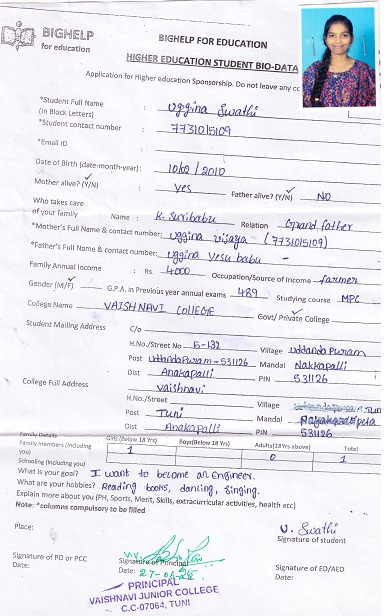 BIGHELP
for education
BIGHELP FOR EDUCATION
HIGHER EDUCATION STUDENT BIO-DATA
Application for Higher education Sponsorship. Do not leave any
*Student Full Name : Uggina Swathi
(In Block Letters)
*Student contact number : 7731015109
*Email ID :
Date of Birth (date-month-year): 10/02/2010
Mother alive? (Y/N) Yes Father alive? (Y/N) NO
Who takes care
of your family Name : K. Suribabu Relation Grand father
*Mother's Full Name & contact number: uggina vijaya (7731015109)
*Father's Full Name & contact number: uggina Yesu babu -
Family Annual Income : Rs. 4000 Occupation/Source of Income farmer
Gender (M/F) G.P.A. in Previous year annual exams 489 Studying course MPC
College Name VAISHNAVI COLLEGE Govt/ Private College
Student Mailing Address C/o
H.No./Street No 5-132 Village Uddandapuram
Post Uddandapuram-531126 Mandal Nakkapalli
Dist Anakapalli PIN 531126
College Full Address vaishnavi
H.No./Street Village Tuni
Post Tuni Mandal
Dist Anakapalli PIN 531126
Family Details Girls (Below 18 Yrs) Boys(Below 18 Yrs) Adults(18Yrs above) Total
Family members (Including you) 1 0 1
Schooling (Including you)
What is your goal? I want to become an Engineer.
What are your hobbies? Reading books, dancing, Singing.
Explain more about you (PH, Sports, Merit, Skills, extracurricular activities, health etc)
Note: *columns compulsory to be filled
Place:
U. Swathi
Signature of student
Signature of PD or PCC Signature of Principal Signature of ED/AED
Date: Date: 27-06-25 Date:
PRINCIPAL
VAISHNAVI JUNIOR COLLEGE
C.C-07064, TUNI